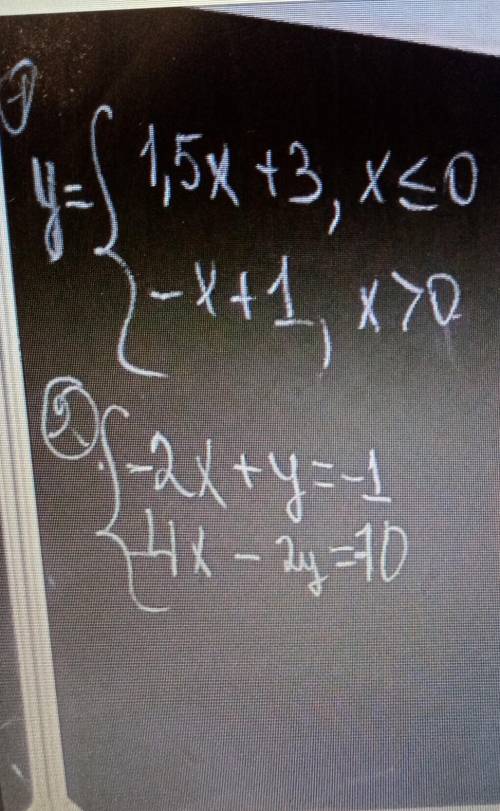 1
y = { 1,5x + 3, x ≤ 0
-x + 1, x > 0
2. { -2x + y = -1
-4x - 2y = 10